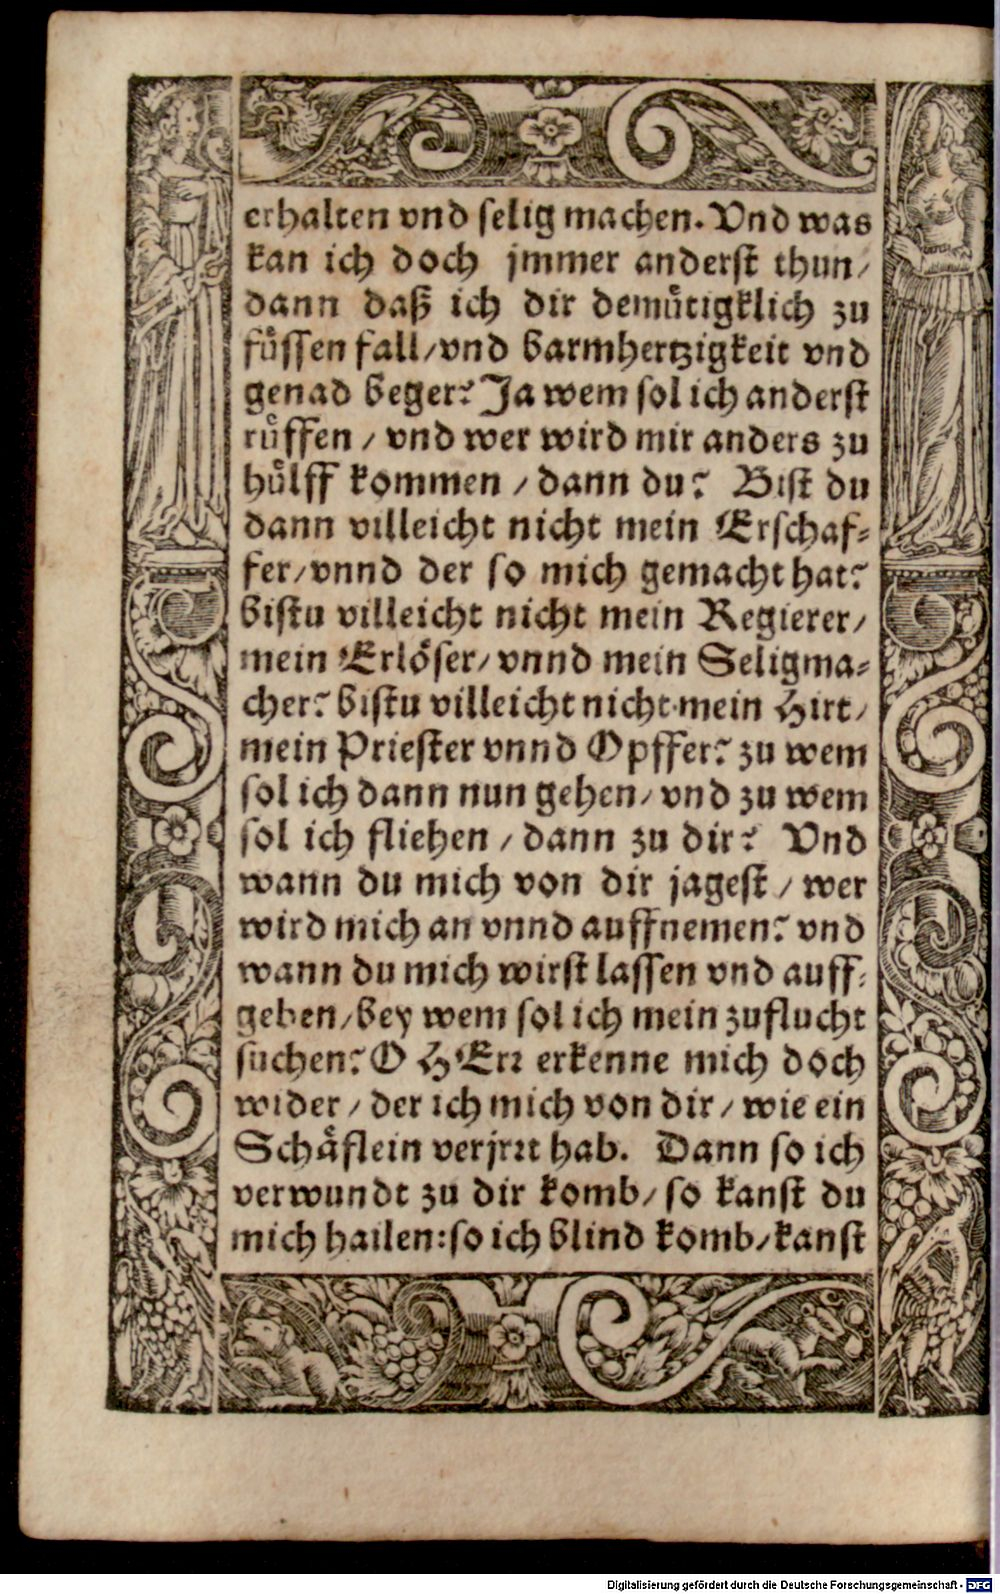 erhalten vnd selig machen. Vnd was
kan ich doch jmmer anderst thun/
dann daß ich dir demuͤtigklich zu
fuͤssen fall/vnd barmhertzigkeit vnd
genad beger? Ja wem sol ich anderst
ruͤffen / vnd wer wird mir anders zu
huͤlff kommen / dann du? Bist du
dann villeicht nicht mein Erschaf-
fer/vnnd der so mich gemacht hat?
bistu villeicht nicht mein Regierer/
mein Erloͤser/ vnnd mein Seligma-
cher? bistu villeicht nicht mein Hirt/
mein Priester vnnd Opffer? zu wem
sol ich dann nun gehen/ vnd zu wem
sol ich fliehen / dann zu dir? Vnd
wann du mich von dir jagest / wer
wird mich an vnnd auffnemen? vnd
wann du mich wirst lassen vnd auff-
geben/bey wem sol ich mein zuflucht
suchen? O HErr erkenne mich doch
wider / der ich mich von dir / wie ein
Schaͤflein verjrrt hab. Dann so ich
verwundt zu dir komb/ so kanst du
mich hailen: so ich blind komb/kanst
Digitalisierung gefördert durch die Deutsche Forschungsgemeinschaft - DFG